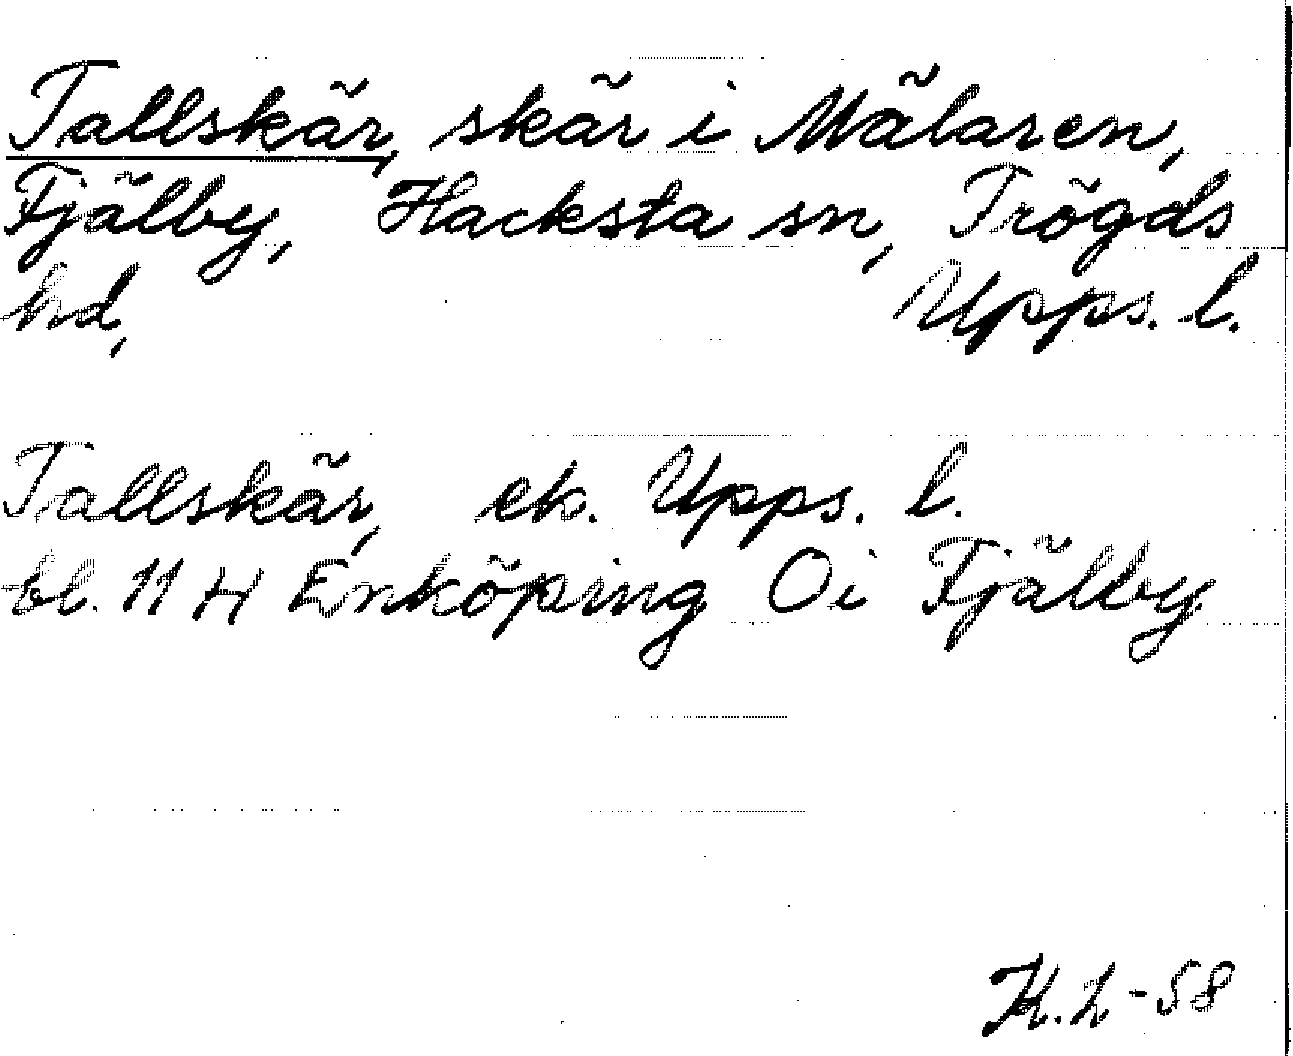 Tallskär, skär i Mälaren,
Fjälby, Hacksta sn, Trögds
hd, Upps. l.
Tallskär, ek. Upps. l.
bl. 11 H Enköping Oi Fjälby
K.L-58